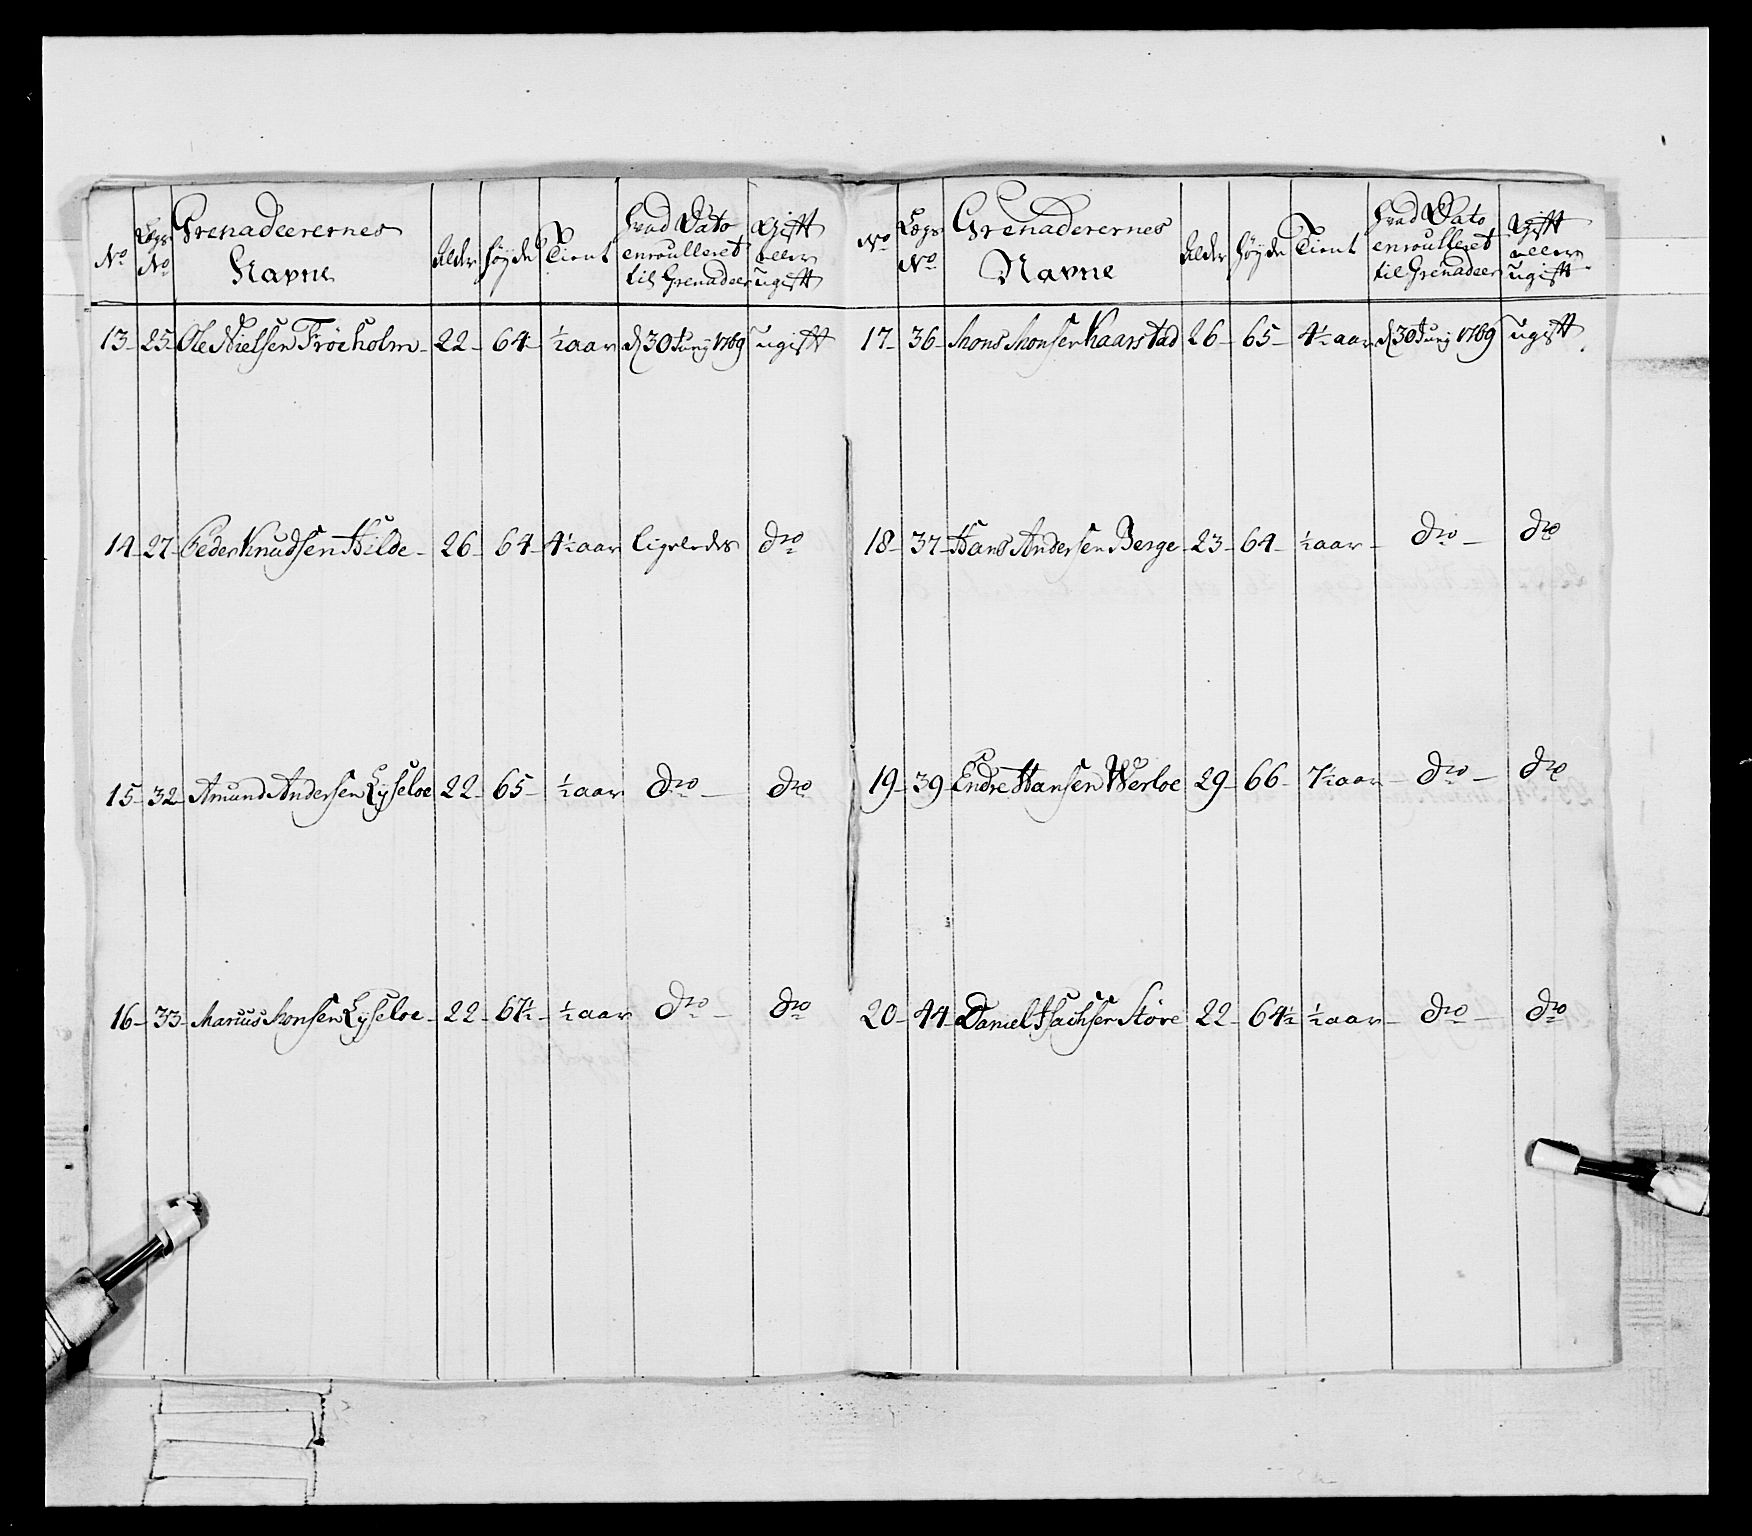 No Lægs No Grenadeerernes Navne Alder Høyde Tient hvad Dato enroulleret til Grenadeer Gift eller ugift
13 25 Ole Nielsen Fröeholm 22 64 ½ aar d 30 Junj 1769 ugift
14 27 Peder Knudsen Hilde 26 64 4½ aar ligeledes dro
15 32 Amund Andersen Lyseloe 22 65 ½ aar dro dro
16 33 Marius Monsen Lyseloe 22 67½ ½ aar dro dro
No Lægs No Grenaderernes Navne Alder Høyde Tient hvad Dato enroulleret til Grenadeer Gift eller ugift
17 36 Mons Monsen Kaarstad 26 65 4½ aar d 30 Junj 1769 ugift
18 37 Hans Andersen Berge 23 64 ½ aar dro dro
19 39 Endre Hansen Werloe 29 66 7½ aar dro dro
20 44 Daniel Isachsen Støve 22 64½ ½ aar dro dro